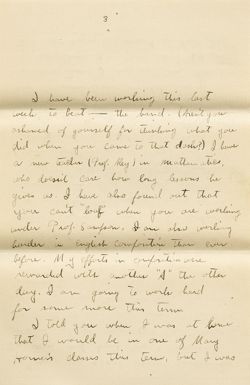 3
I have been working this last
week to beat — the band. (Aren't you
ashamed of yourself for thinking what you
did when you came to that dash?) I have
a new teacher (Prof. Key) in mathematics,
who doesn't care how long lessons he
gives us. I have also found out that
you can't "loaf" when you are working
under Prof. Sampson. I am also working
harder in english composition than ever
before. My efforts in composition were
rewarded with another "A" the other
day. I am going to work hard
for some more this term.
I told you when I was at home
that I would be in one of Mary
classes this term, but I was